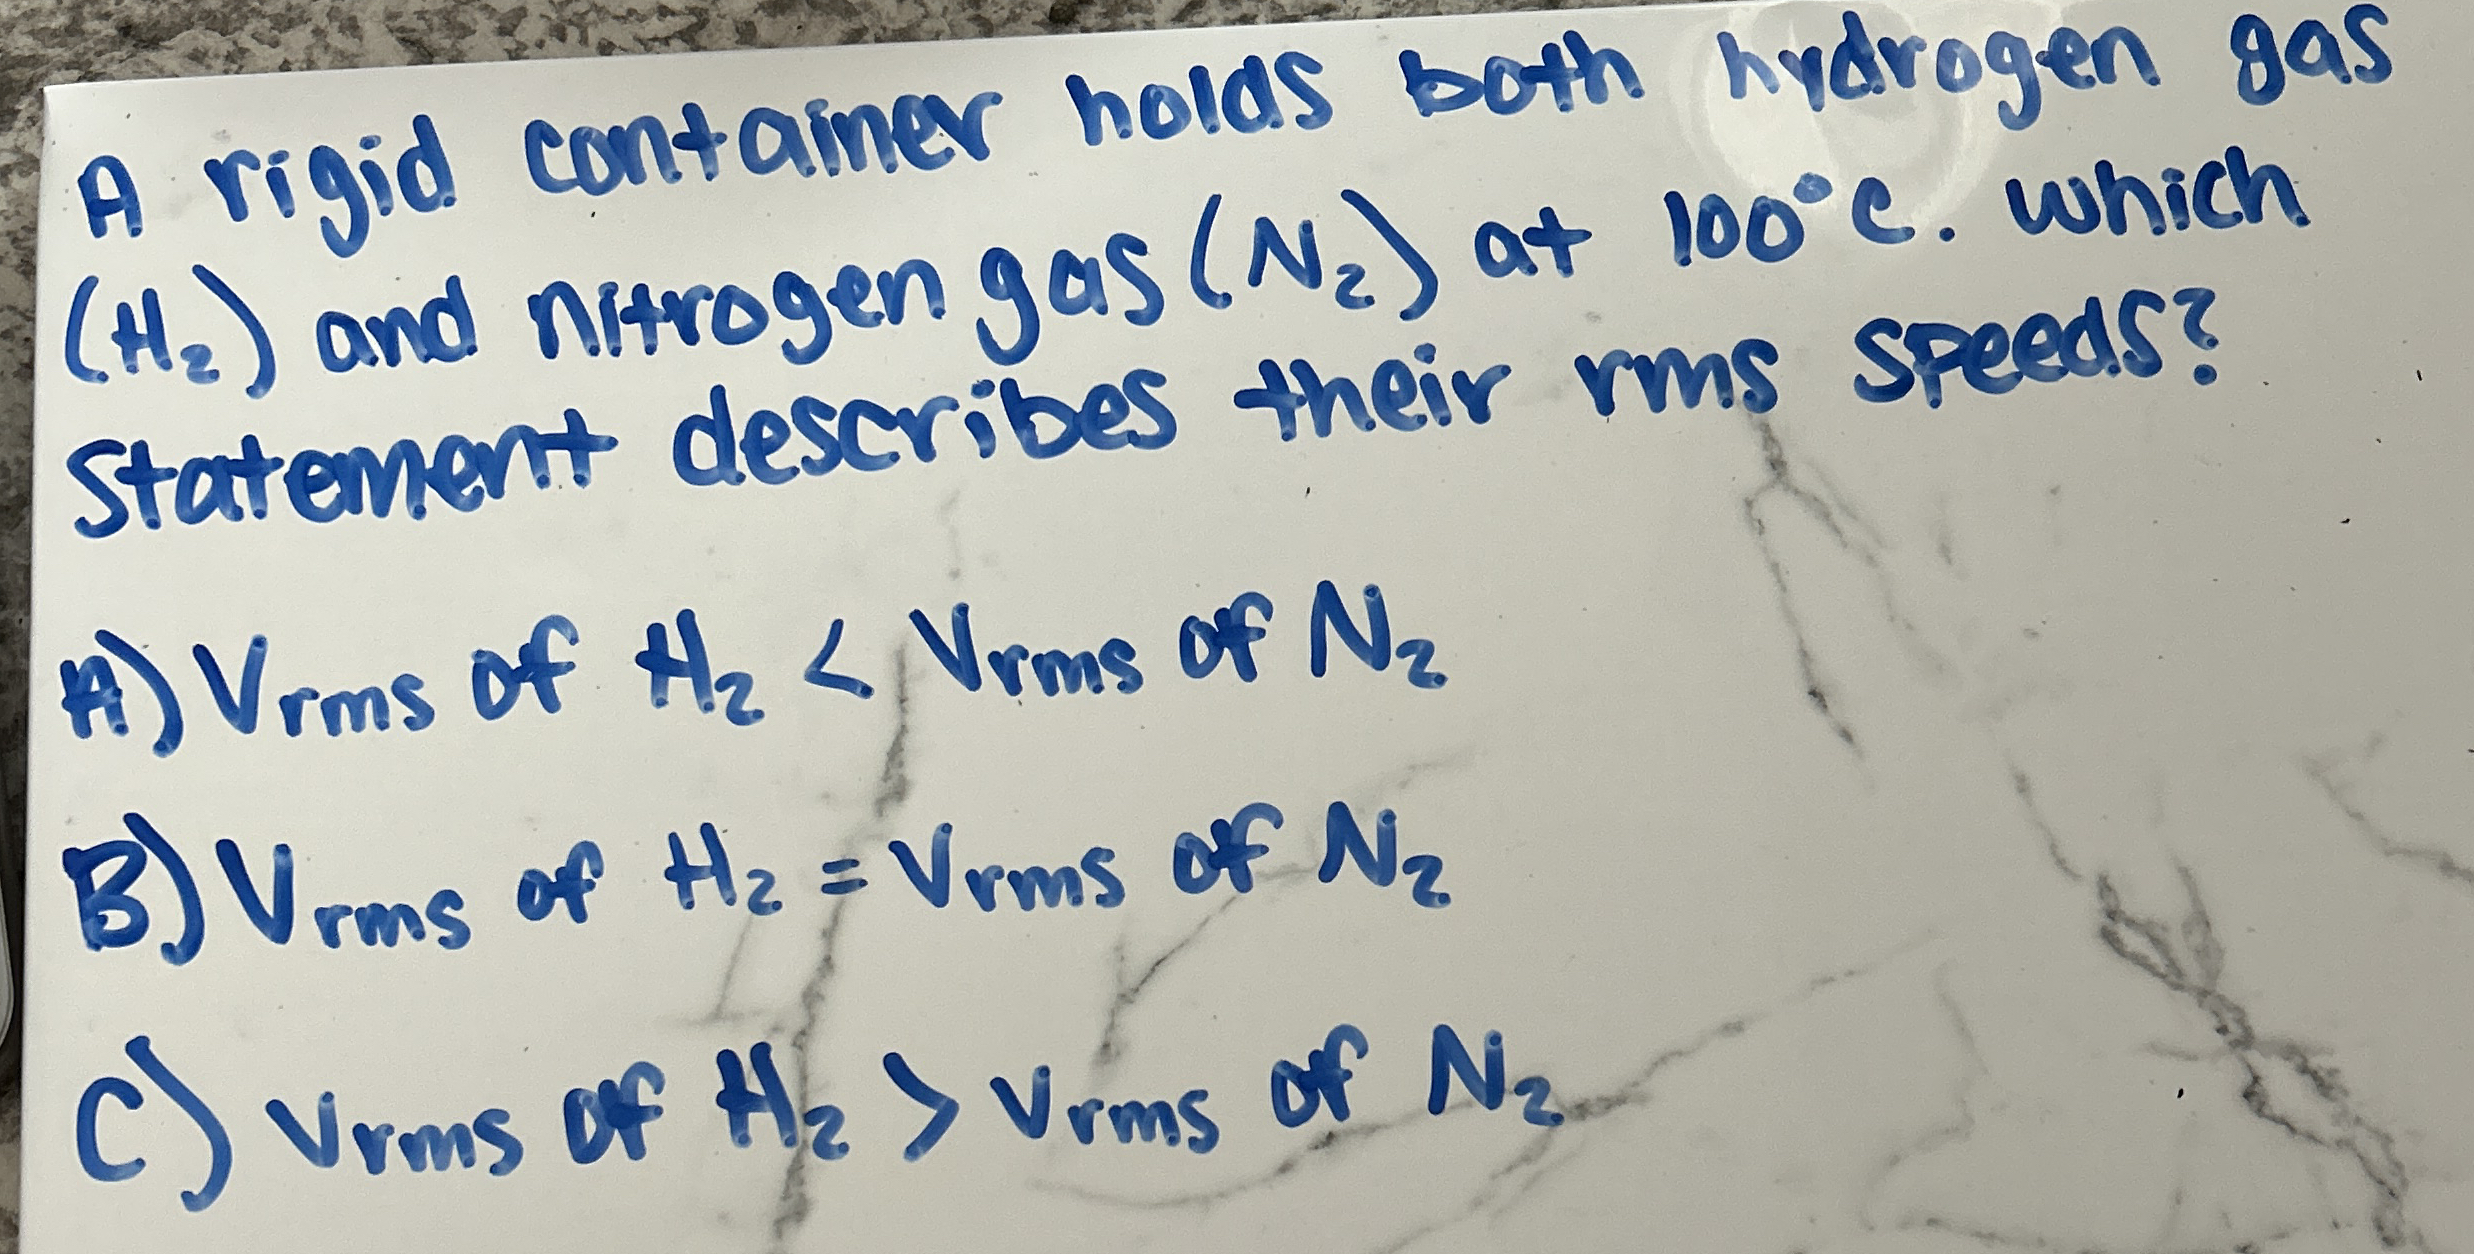 A rigid container holds both hydrogen gas
(H₂) and nitrogen gas (N₂) at 100°C. Which
Statement describes their rms speeds?
A) Vrms of H₂ < Vrms of N₂
B) Vrms of H₂ = Vrms of N₂
C) Vrms of H₂ > Vrms of N₂